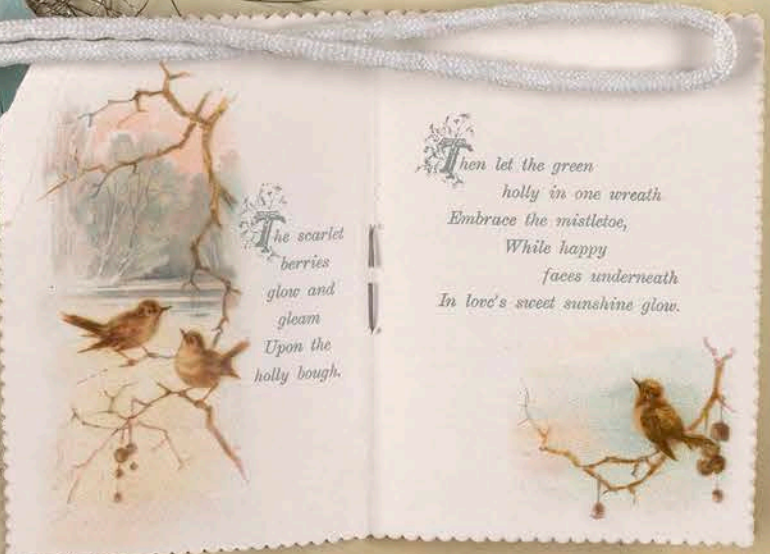 The scarlet
berries
glow and
gleam
Upon the
holly bough.
Then let the green
holly in one wreath
Embrace the mistletoe,
While happy
faces underneath
In love's sweet sunshine glow.